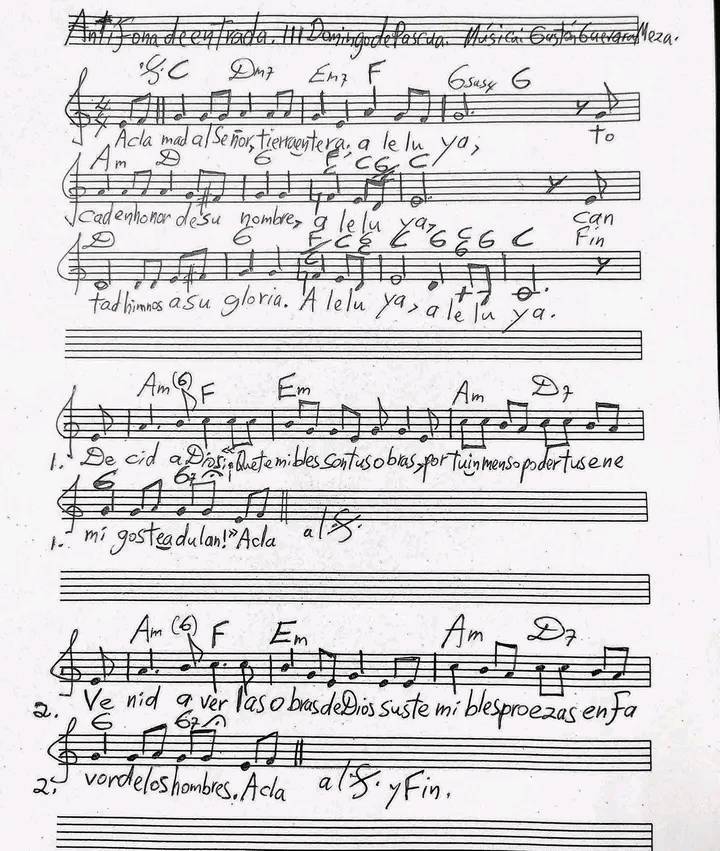 Antífona de entrada. III Domingo de Pascua. Música: Gustavo Guevara Meza.
C Dm7 Em7 F Gsus4 G
4/4
Aclamad al Señor, tierra entera. a le lu ya, to
Am D G F C G C
cad en honor de su nombre, a le lu ya, can
D G F C G C G C G C Fin
tad himnos a su gloria. A le lu ya, a le lu ya.
Am (G) F Em Am D7
1. De cid a Dios: ¡¡Que temibles son tus obras, por tu inmenso poder tus ene
G G7
1. mi gos te adulan!" Acla al
Am (G) F Em Am D7
2. Ve nid a ver las obras de Dios sus te mi bles proezas en fa
G G7
2. vor de los hombres. Acla al y Fin.